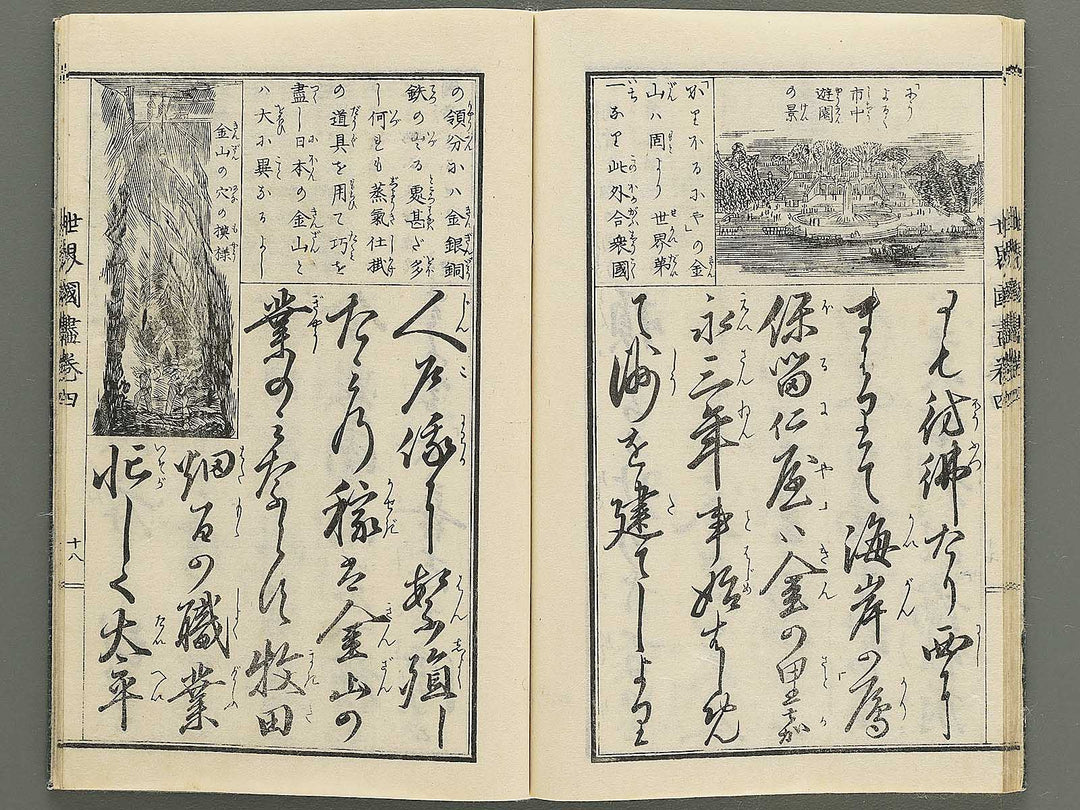 市中
遊園
の景
「かりほるにや」の金
山ハ固より世界第
一なり此外合衆國
まハりて海岸の鷹
保留仁屋ハ金の里嘉
永三年事始
て洲を建てしより
世界國盡卷四
の領分にハ金銀銅
鉄の出る處甚だ多
し何れも蒸氣仕掛
の道具を用て巧を
盡し日本の金山と
ハ大に異なるよし
金山の穴の模様
人戸俄に繁殖し
たゞ乃稼は金山の
業のミならず牧田
畑百の職業
忙しく太平
世界國盡卷四
十八